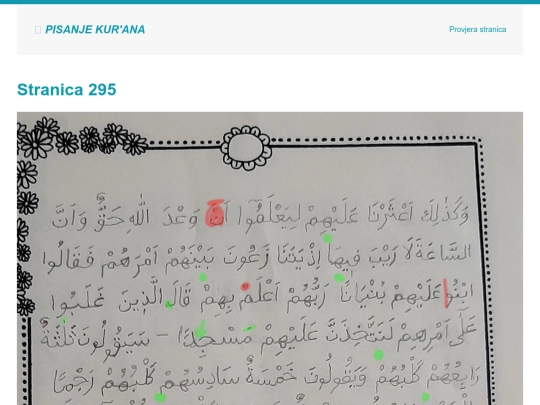 PISANJE KUR'ANA
Provjera stranica
Stranica 295
وَكَذٰلِكَ اَعْثَرْنَا عَلَيْهِمْ لِيَعْلَمُٓوا اَنَّ وَعْدَ اللّٰهِ حَقٌّ وَاَنَّ
السَّاعَةَ لَا رَيْبَ ف۪يهَا اِذْ يَتَنَازَعُونَ بَيْنَهُمْ اَمْرَهُمْ فَقَالُوا
ابْنُوا عَلَيْهِمْ بُنْيَانًا رَبُّهُمْ اَعْلَمُ بِهِمْ قَالَ الَّذ۪ينَ غَلَبُوا
عَلٰٓى اَمْرِهِمْ لَنَتَّخِذَنَّ عَلَيْهِمْ مَسْجِدًا سَيَقُولُونَ ثَلٰثَةٌ
رَابِعُهُمْ كَلْبُهُمْ وَيَقُولُونَ خَمْسَةٌ سَادِسُهُمْ كَلْبُهُمْ رَجْمًا